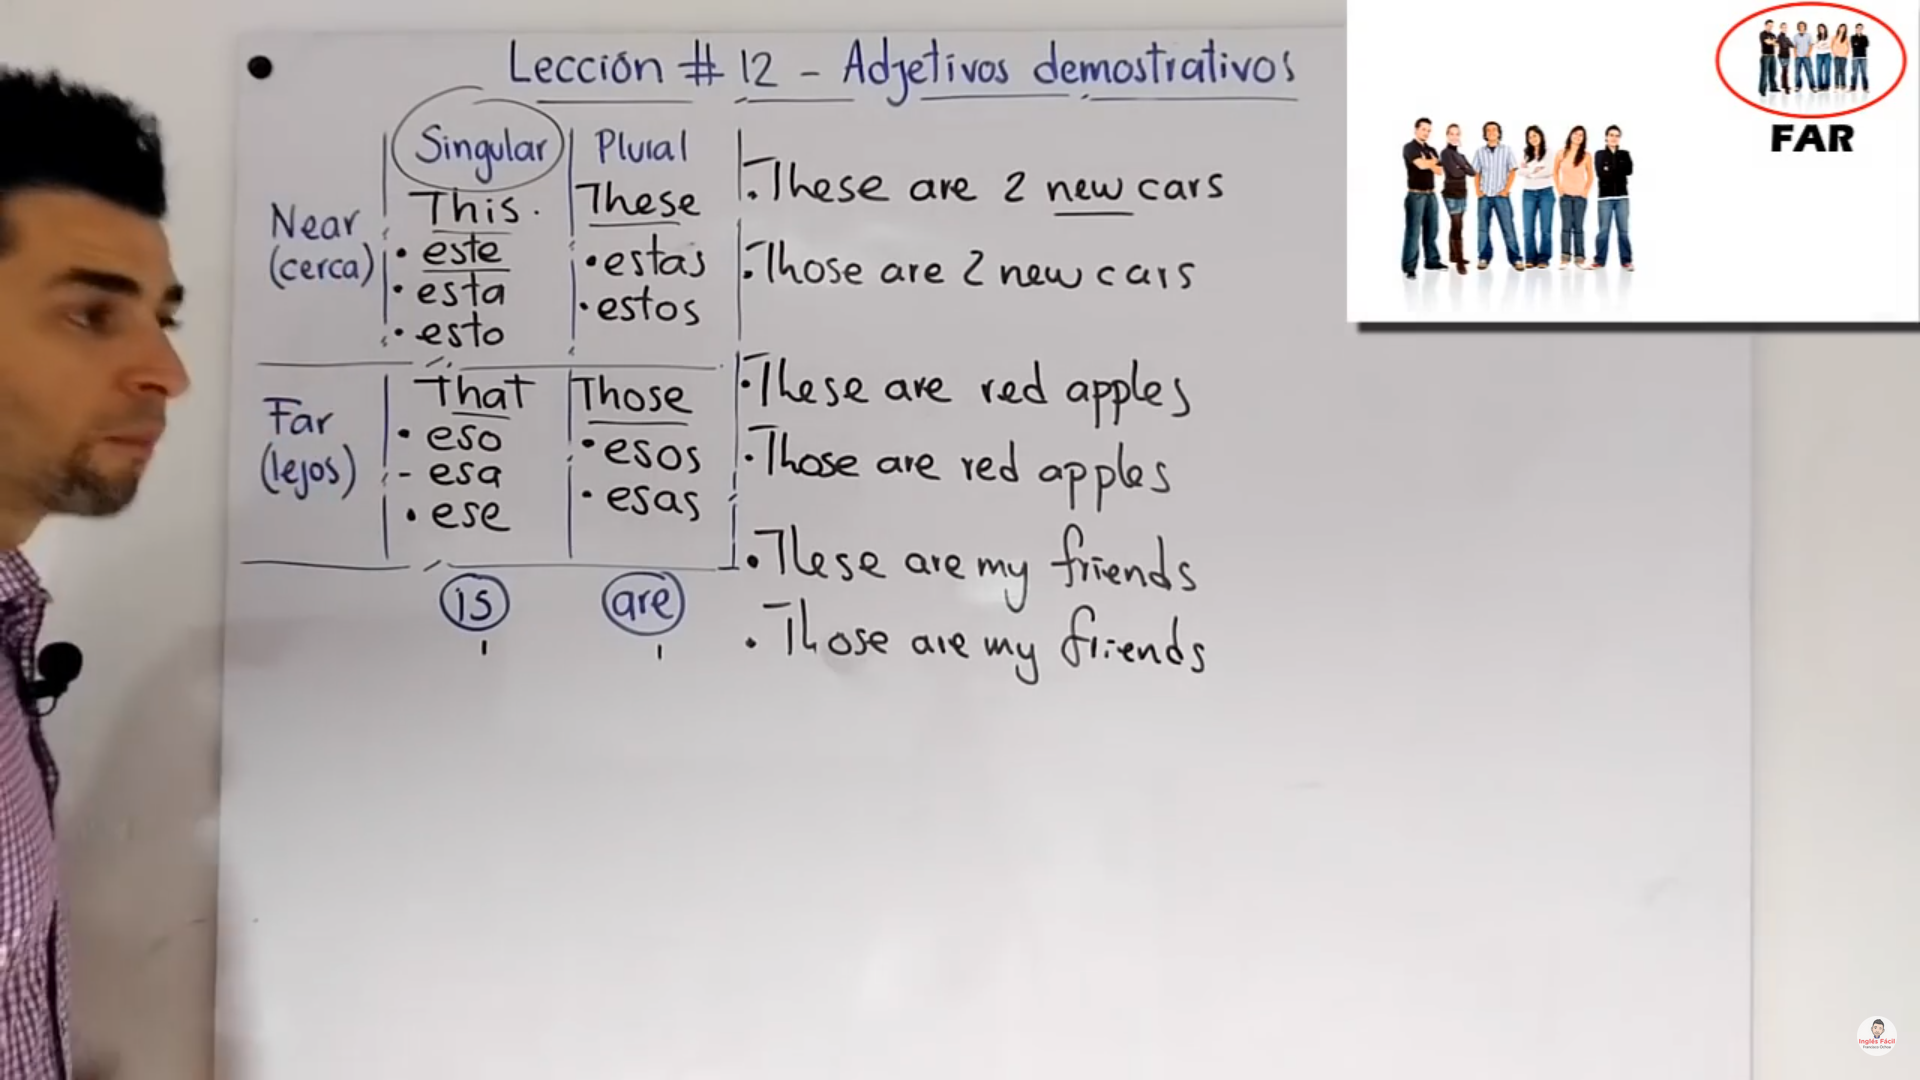 Lección # 12 - Adjetivos demostrativos
Singular Plural
Near (cerca)
This.
• este
• esta
• esto
These
• estas
• estos
Far (lejos)
That
• eso
- esa
• ese
Those
• esos
• esas
is are
• These are 2 new cars
• Those are 2 new cars
• These are red apples
• Those are red apples
• These are my friends
• Those are my friends
FAR
Inglés Fácil